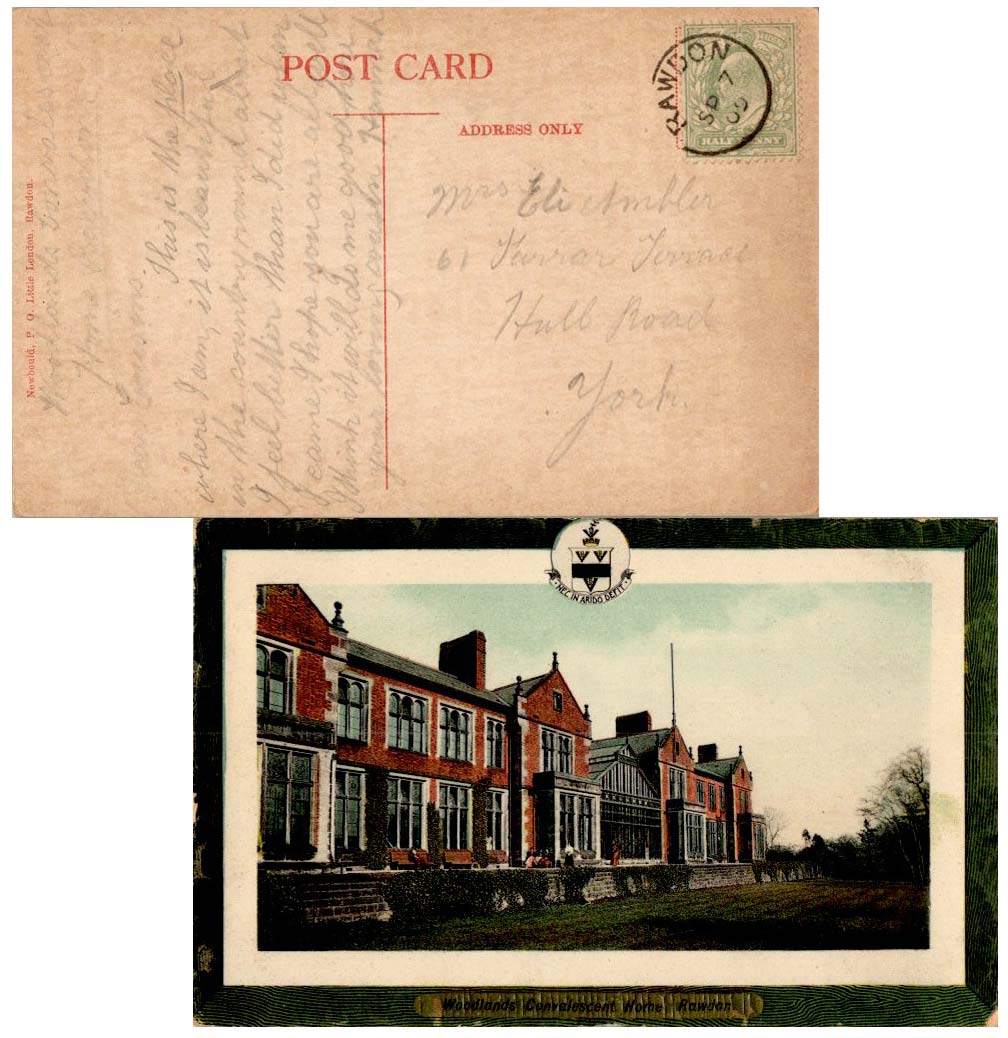 POST CARD
ADDRESS ONLY
RAWDON
SP 7
09
HALFPENNY
Newbould, P. O. Little London, Rawdon.
Woodlands Convalescent
Home Rawdon
Cousins
This is the place
where I am, it is beautiful
in the country round about
I feel better than I did when
I came I hope you are all well
I think it will do me good
your loving cousin Hannah
Mrs Eli Ambler
61 Farrar Terrace
Hull Road
York.
NEC IN ARIDO DEFIT
Woodlands Convalescent Home Rawdon.